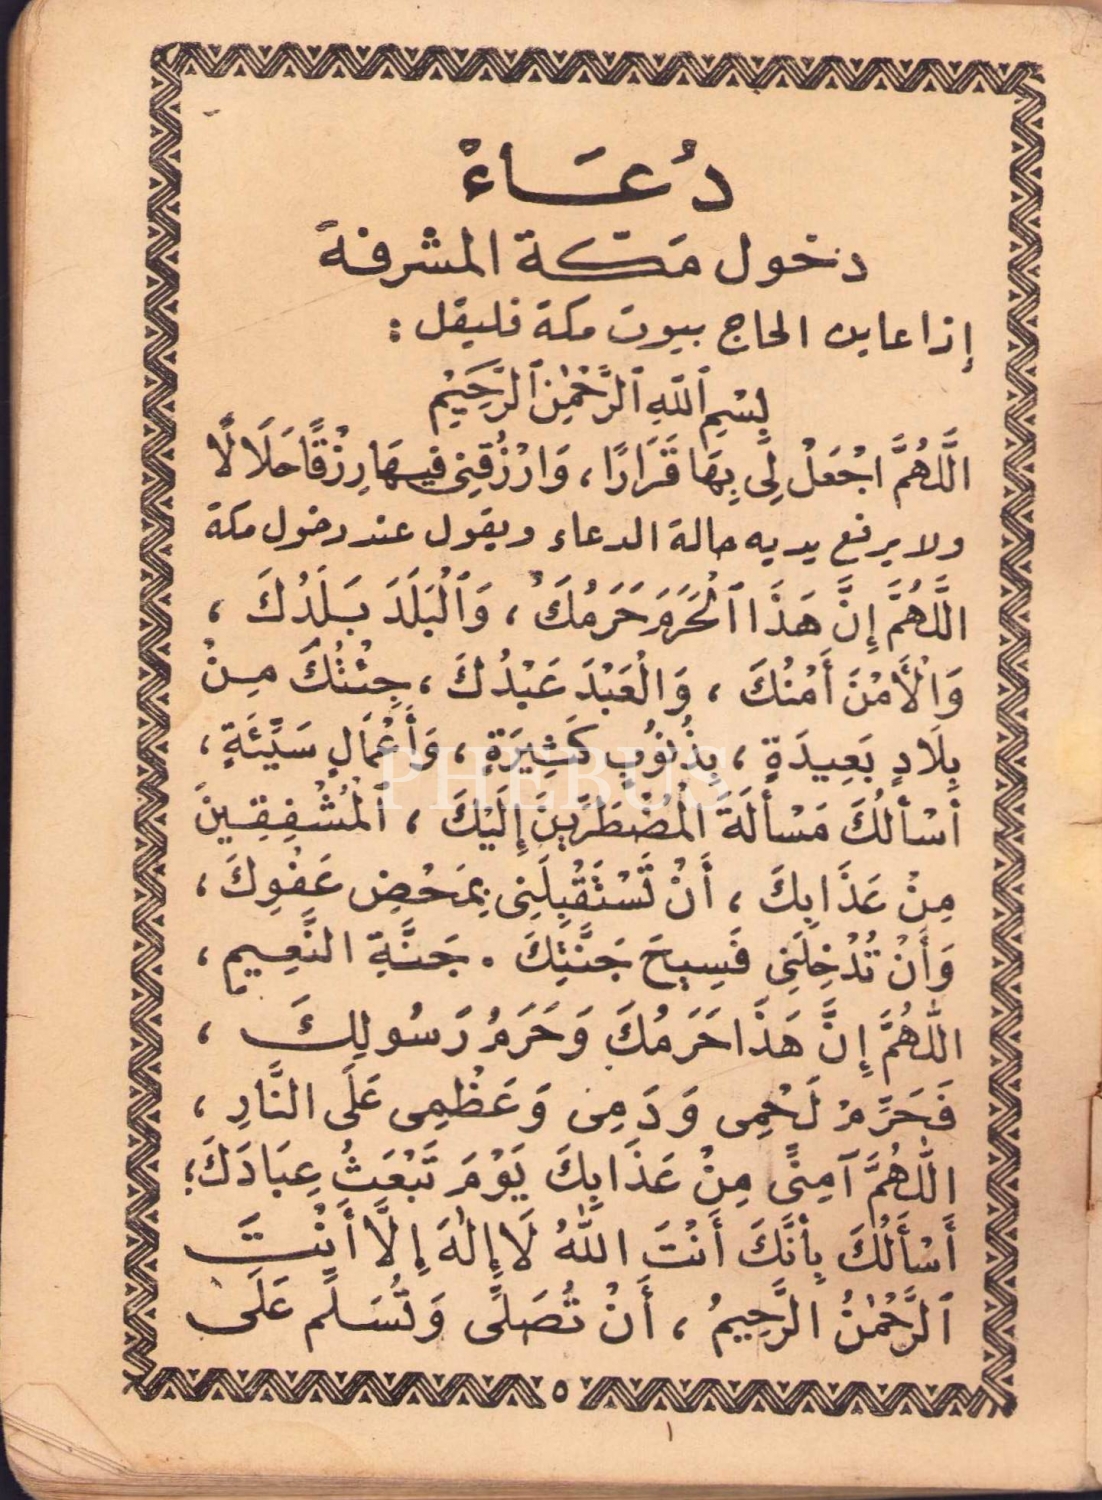 دُعَاءْ
دخول مَكّة المشرفة
إذا عاين الحاج بيوت مكة فليقل :
بِسْمِ ٱللَّهِ ٱلرَّحْمٰنِ ٱلرَّحِيْمِ
اللَّهُمَّ اجْعَلْ لِى بِهَا قَرَارًا ، وَارْزُقْنِى فِيهَا رِزْقًا حَلَالًا
ولا يرفع يديه حالة الدعاء ويقول عند دخول مكة
اللَّهُمَّ إِنَّ هَذَا ٱلْحَرَمَ حَرَمُكَ ، وَٱلْبَلَدَ بَلَدُكَ ،
وَالْأَمْنَ أَمْنُكَ ، وَالْعَبْدَ عَبْدُكَ ، جِئْتُكَ مِنْ
بِلَادٍ بَعِيدَةٍ ، بِذُنُوبٍ كَثِيرَةٍ ، وَأَعْمَالٍ سَيِّئَةٍ ،
أسْألُكَ مَسْألَةَ الْمُضْطَرِّينَ إِلَيْكَ ، ٱلْمُشْفِقِينَ
مِنْ عَذَابِكَ ، أَنْ تَسْتَقْبِلَنِى بِمَحْضِ عَفْوِكَ ،
وَأَنْ تُدْخِلَنِى فَسِيحَ جَنَّتِكَ . جَنَّةِ النَّعِيمِ ،
اللّٰهُمَّ إِنَّ هَذَا حَرَمُكَ وَحَرَمُ رَسُولِكَ ،
فَحَرِّمْ لَحْمِى وَدَمِى وَعَظْمِى عَلَى النَّارِ ،
اللّٰهُمَّ آمِنِّى مِنْ عَذَابِكَ يَوْمَ تَبْعَثُ عِبَادَكَ؛
أَسْأَلُكَ بِأنَّكَ أَنْتَ اللّٰهُ لَا إِلٰهَ إِلَّا أَنْتَ
ٱلرَّحْمٰنُ الرَّحِيمُ ، أَنْ تُصَلِّى وَتُسَلِّمَ عَلَى
٥
PHEBUS